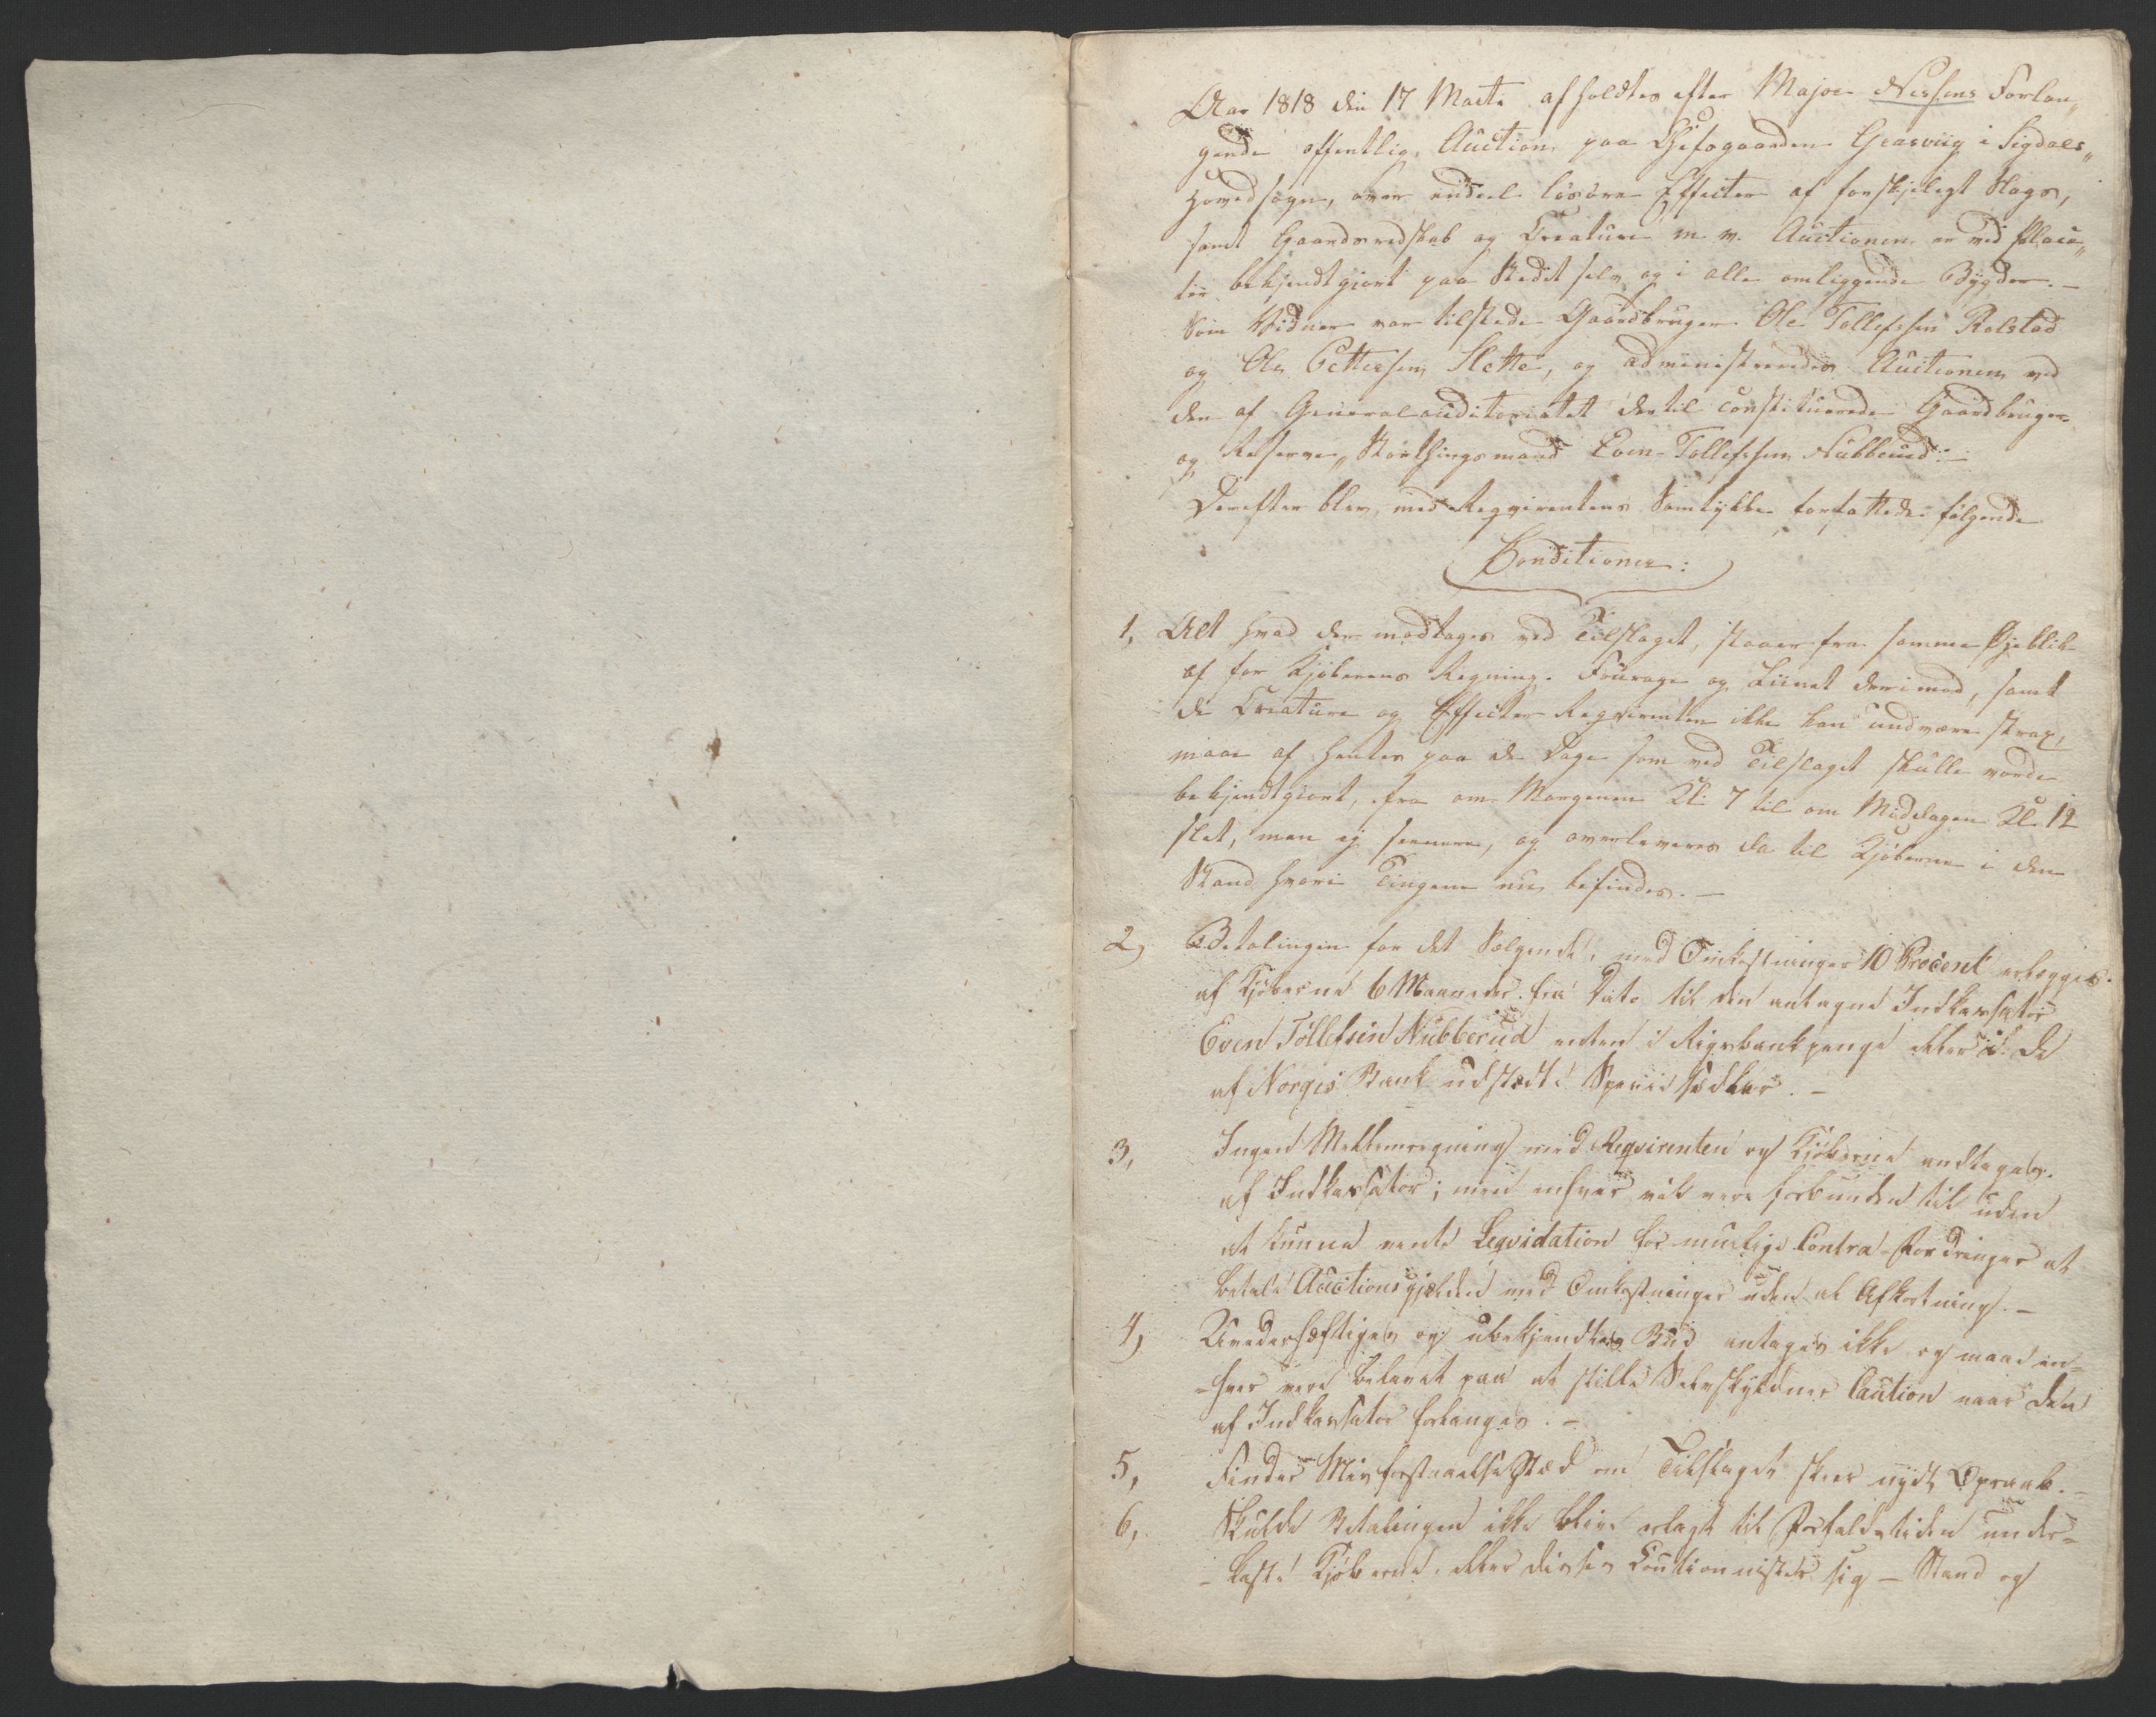 Aar 1818 den 17 Marti afholdtes efter Major Nissens Forlan„
gende offentlig Auction paa Chefsgaarden Grasviig i Sigdals„
Hovedsogn, over endeel løsøre Effecter af forskjeligt Slags,
samt Gaardsredskab og Creature m. v. Auctionen er ved Placa„
ter bekjendtgiort paa Stedet selv og i alle omliggende Bygder. –
Som Vidner var tilstede Gaardbruger Ole Tollefssen Ralstad
og Ole Pettersen Slette, og administreredes Auctionen ved
den af Generalauditoriatet dertil constituerede Gaardbruger
og Reserve„ Storthingsmand Even Tollefssen Nubberud. –
Derefter blev, med Reqvirentens Samtykke forfattede følgende
Conditioner:
1, Alt hvad der modtages ved Tilslaget, staaer fra samme Øjeblik
af for Kjøberens Regning. Fourage og Liinet derimod, samt
de Creature og Effecter Reqvirenten ikke kan undvære strax,
maae af hentes paa de Dage som ved Tilslaget skulle vorde
bekjendtgiort, fra om Morgenen Kl: 7 til om Middagen Kl. 12
slet, men ej seenere, og overleveres da til Kjøberne i den
Stand hvori Tingene nu befindes. –
2, Betalingen for det Sælgende, med Omkostninger 10 Procent erlægges
af Kjøberne 6 Maaneder fra Dato til den antagne Indkassator
Even Tollefsen Nubberud enten i Rigsbankpenge eller i de
af Norges Bank udstædte Speciesedler. –
3, Ingen Mellemregning med Reqvirenten og Kjøberne modtages
af Indkassator; men enhver vil være forbunden til uden
at kunne vente Leqvidation for muelige Contra-Fordringer at
betale Auctionsgjælden med Omkostninger uden al Afkortning. –
4, Uvederhæftiges og ubekjendtes Bud antages ikke og maae en-
-hver være belavet paa at stille Selvskyldner Caution naar den
af Indkassator forlanges. –
5, Finder Misforstaaelse Stæd om Tilslaget skeer nydt Opraab. –
6, Skulde Betalingen ikke blive erlagt til Forfaldstiden under-
-kaste Kjøberne eller disses Cautionnister sig – Stand og